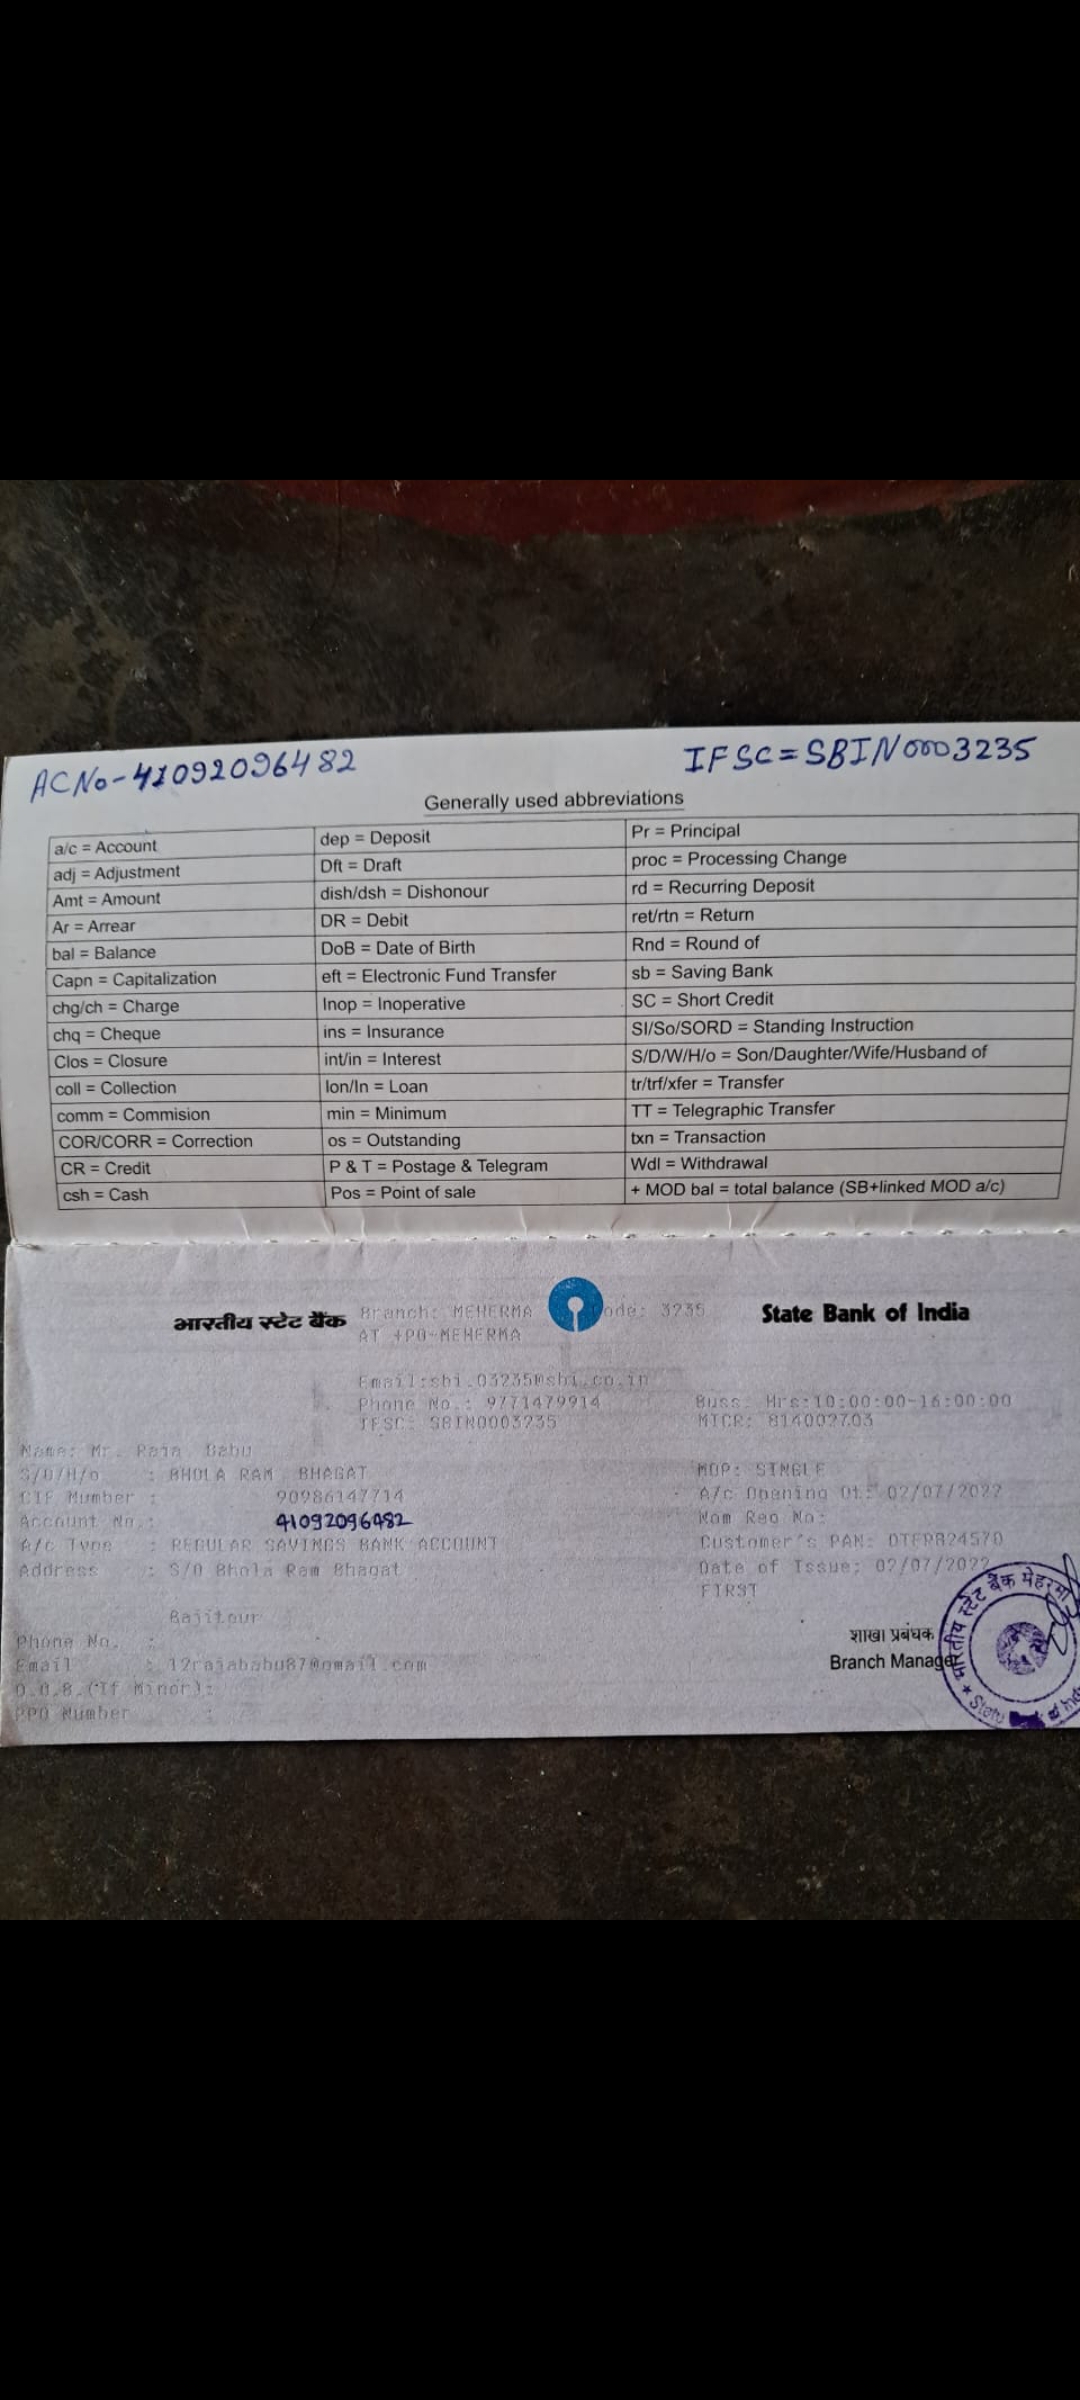 ACNo-41092096482
IFSC=SBIN0003235
Generally used abbreviations
a/c = Account
dep = Deposit
Pr = Principal
adj = Adjustment
Dft = Draft
proc = Processing Change
Amt = Amount
dish/dsh = Dishonour
rd = Recurring Deposit
Ar = Arrear
DR = Debit
ret/rtn = Return
bal = Balance
DoB = Date of Birth
Rnd = Round of
Capn = Capitalization
eft = Electronic Fund Transfer
sb = Saving Bank
chg/ch = Charge
Inop = Inoperative
SC = Short Credit
chq = Cheque
ins = Insurance
SI/So/SORD = Standing Instruction
Clos = Closure
int/in = Interest
S/D/W/H/o = Son/Daughter/Wife/Husband of
coll = Collection
lon/ln = Loan
tr/trf/xfer = Transfer
comm = Commision
min = Minimum
TT = Telegraphic Transfer
COR/CORR = Correction
os = Outstanding
txn = Transaction
CR = Credit
P & T = Postage & Telegram
Wdl = Withdrawal
csh = Cash
Pos = Point of sale
+ MOD bal = total balance (SB+linked MOD a/c)
भारतीय स्टेट बैंक Branch: MEHERMA ode: 3235 State Bank of India
AT +PO-MEHERMA
Email:sbi.03235@sbi.co.in
Phone No.: 9771479914 Buss. Hrs:10:00:00-16:00:00
IFSC: SBIN0003235 MICR: 814002703
Name: Mr. Raja Babu
S/D/H/o : BHOLA RAM BHAGAT MOP: SINGLE
CIF Number : 90986147714 A/c Opening Dt: 02/07/2022
Account No.: 41092096482 Nom Reg No:
A/c Type : REGULAR SAVINGS BANK ACCOUNT Customer's PAN:
Address : S/O Bhola Ram Bhagat Date of Issue: 02/07/2022
FIRST
Bajitpur
Phone No. :
Email : 12rajababu87@gmail.com
D.O.B.(If Minor):
PPO Number :
शाखा प्रबंधक
Branch Manager
भारतीय स्टेट बैंक मेहरमा